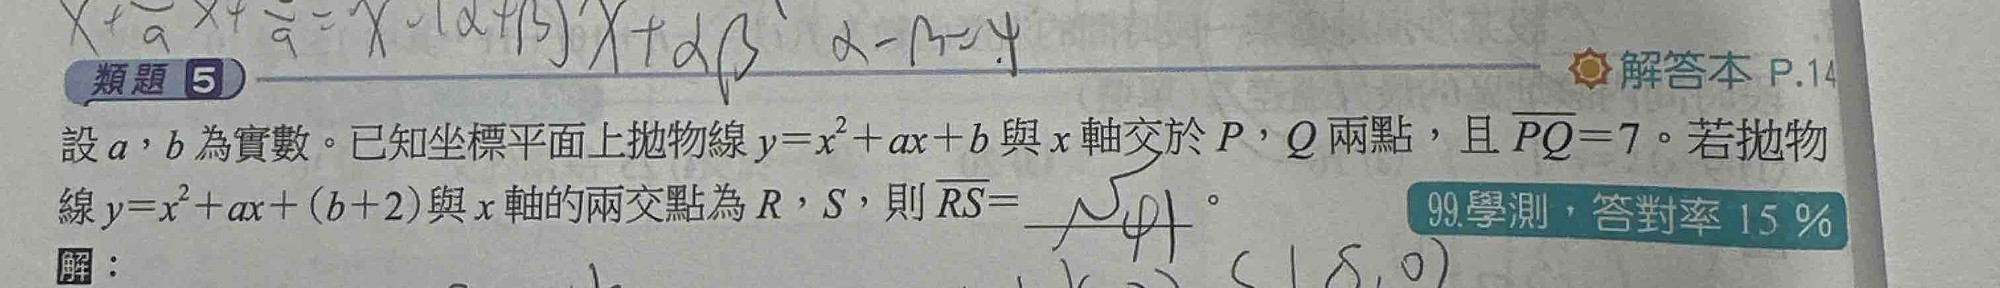 x+ᵃ x+ a = x-(α+β)x+αβ α-β=4
類題 5 解答本 P.14
設 a，b 為實數。已知坐標平面上拋物線 y=x²+ax+b 與 x 軸交於 P，Q 兩點，且 PQ=7。若拋物
線 y=x²+ax+(b+2) 與 x 軸的兩交點為 R，S，則 RS= √41 。
99.學測，答對率 15 %
解：
S(δ,0)